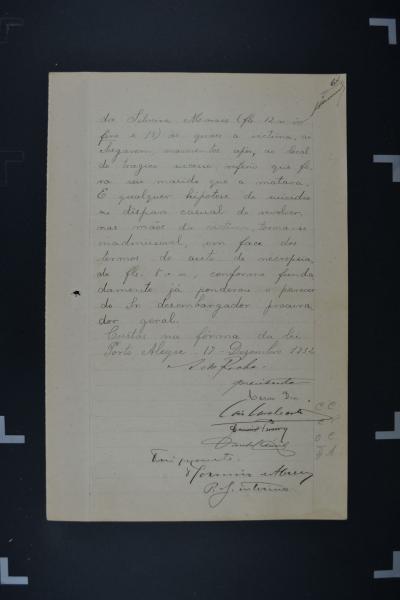 da Silveira Menezes (fls. 12 v. in
fine e 13) às quaes a victima, ao
chegarem, momentos após, ao local
do tragico sucesso, referio que fo-
ra seu marido que a matara.
E qualquer hipótese de suicidio
ou disparo casual do revolver,
nas mãos da victima, torna-se
inadmissivel, em face dos
termos do auto de necropsia,
de fls. 5 e v., conforme funda-
damente já ponderou o parecer
do Sr. desembargador procura-
dor geral.
Custas na fórma da lei
Porto Alegre, 17 - Dezembro 1934
presidente
Fui presente.
P. G. interino